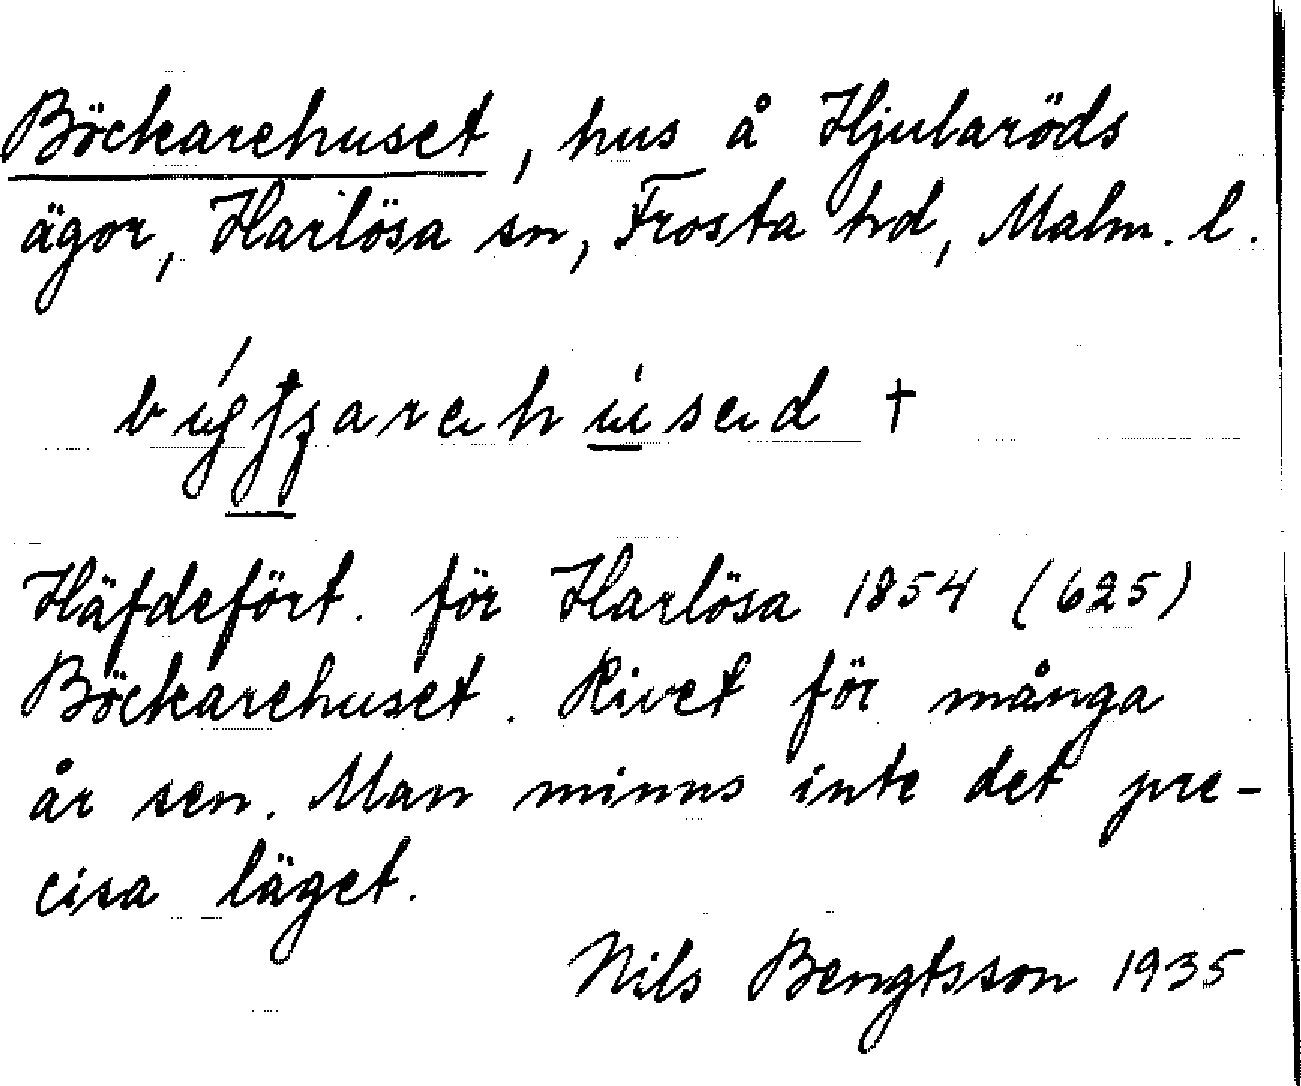 Böckarehuset, hus å Hjularöds
ägor, Harlösa sn, Frosta hd, Malm. l.
†
Häfdefört. för Harlösa 1854 (625)
Böckarehuset. Rivet för många
år sen. Man minns inte det pre-
cisa läget.
Nils Bengtsson 1935